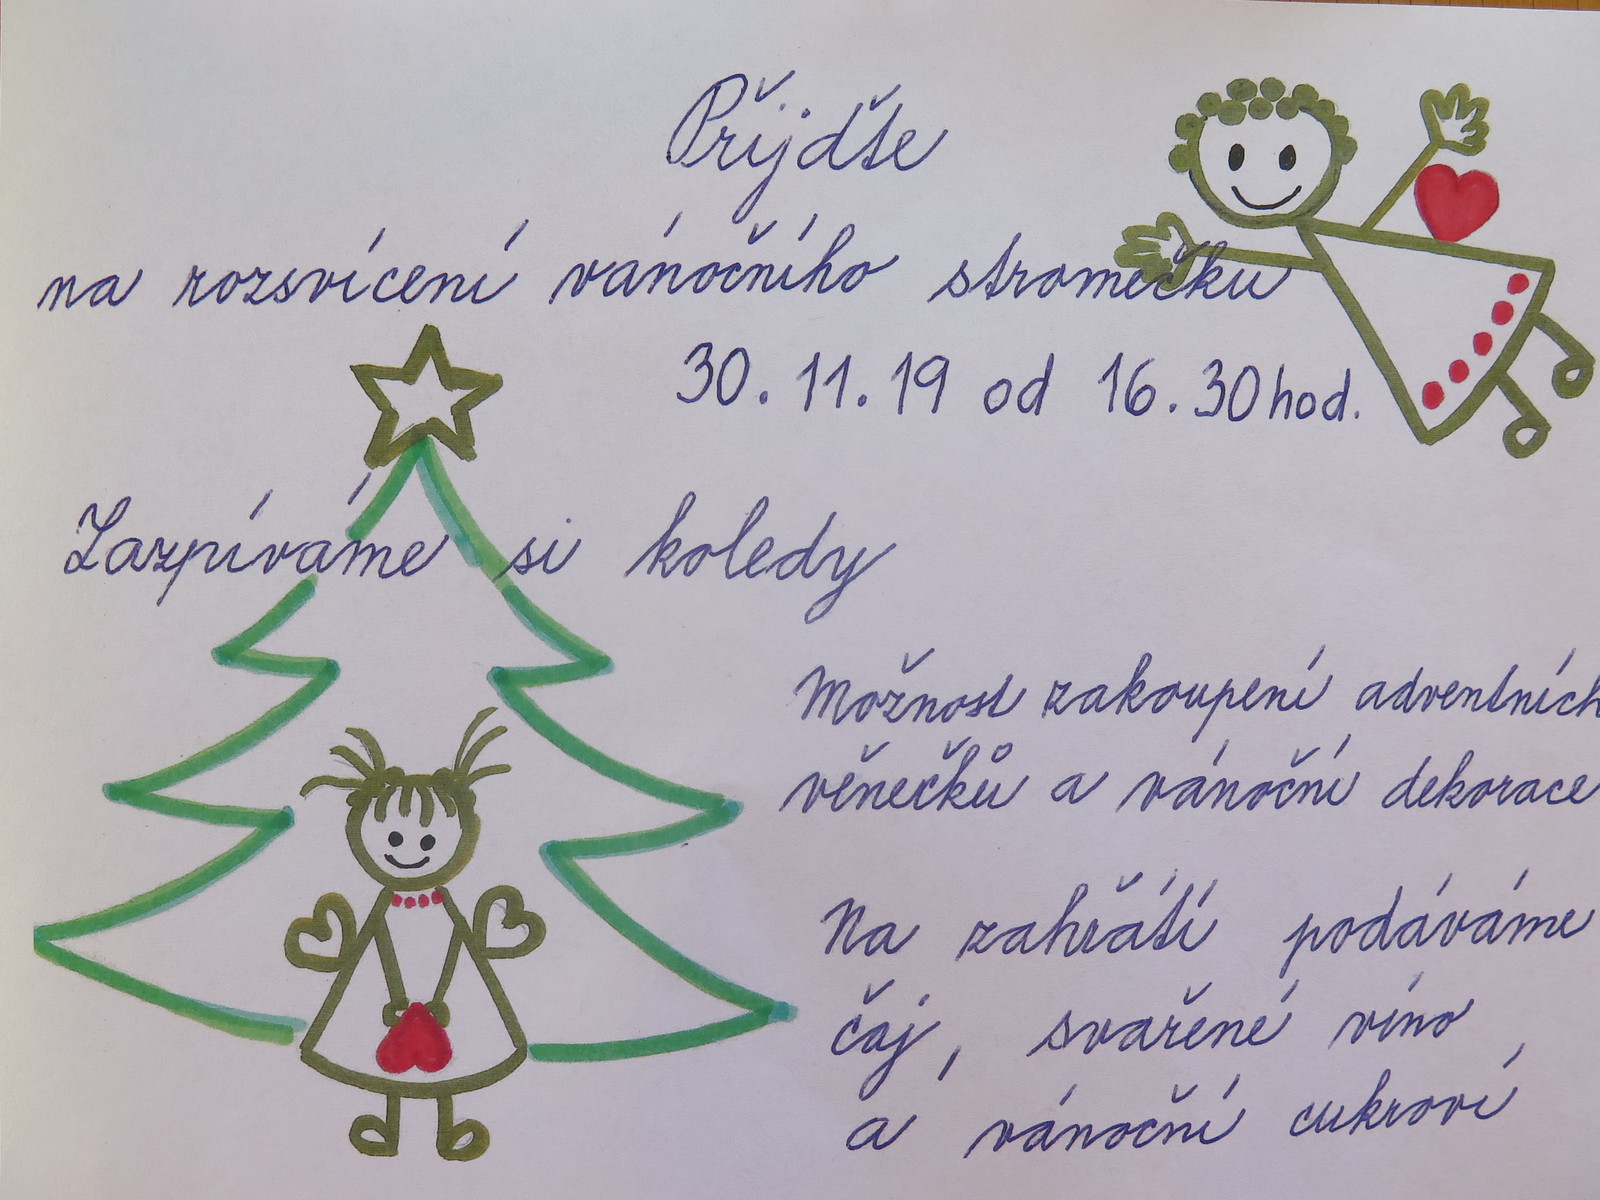 Přijďte
na rozsvícení vánočního stromečku
30.11.19 od 16.30hod.
Zazpíváme si koledy
Možnost zakoupení adventních
věnečků a vánoční dekorace
Na zahřátí podáváme
čaj, svařené víno,
a vánoční cukroví